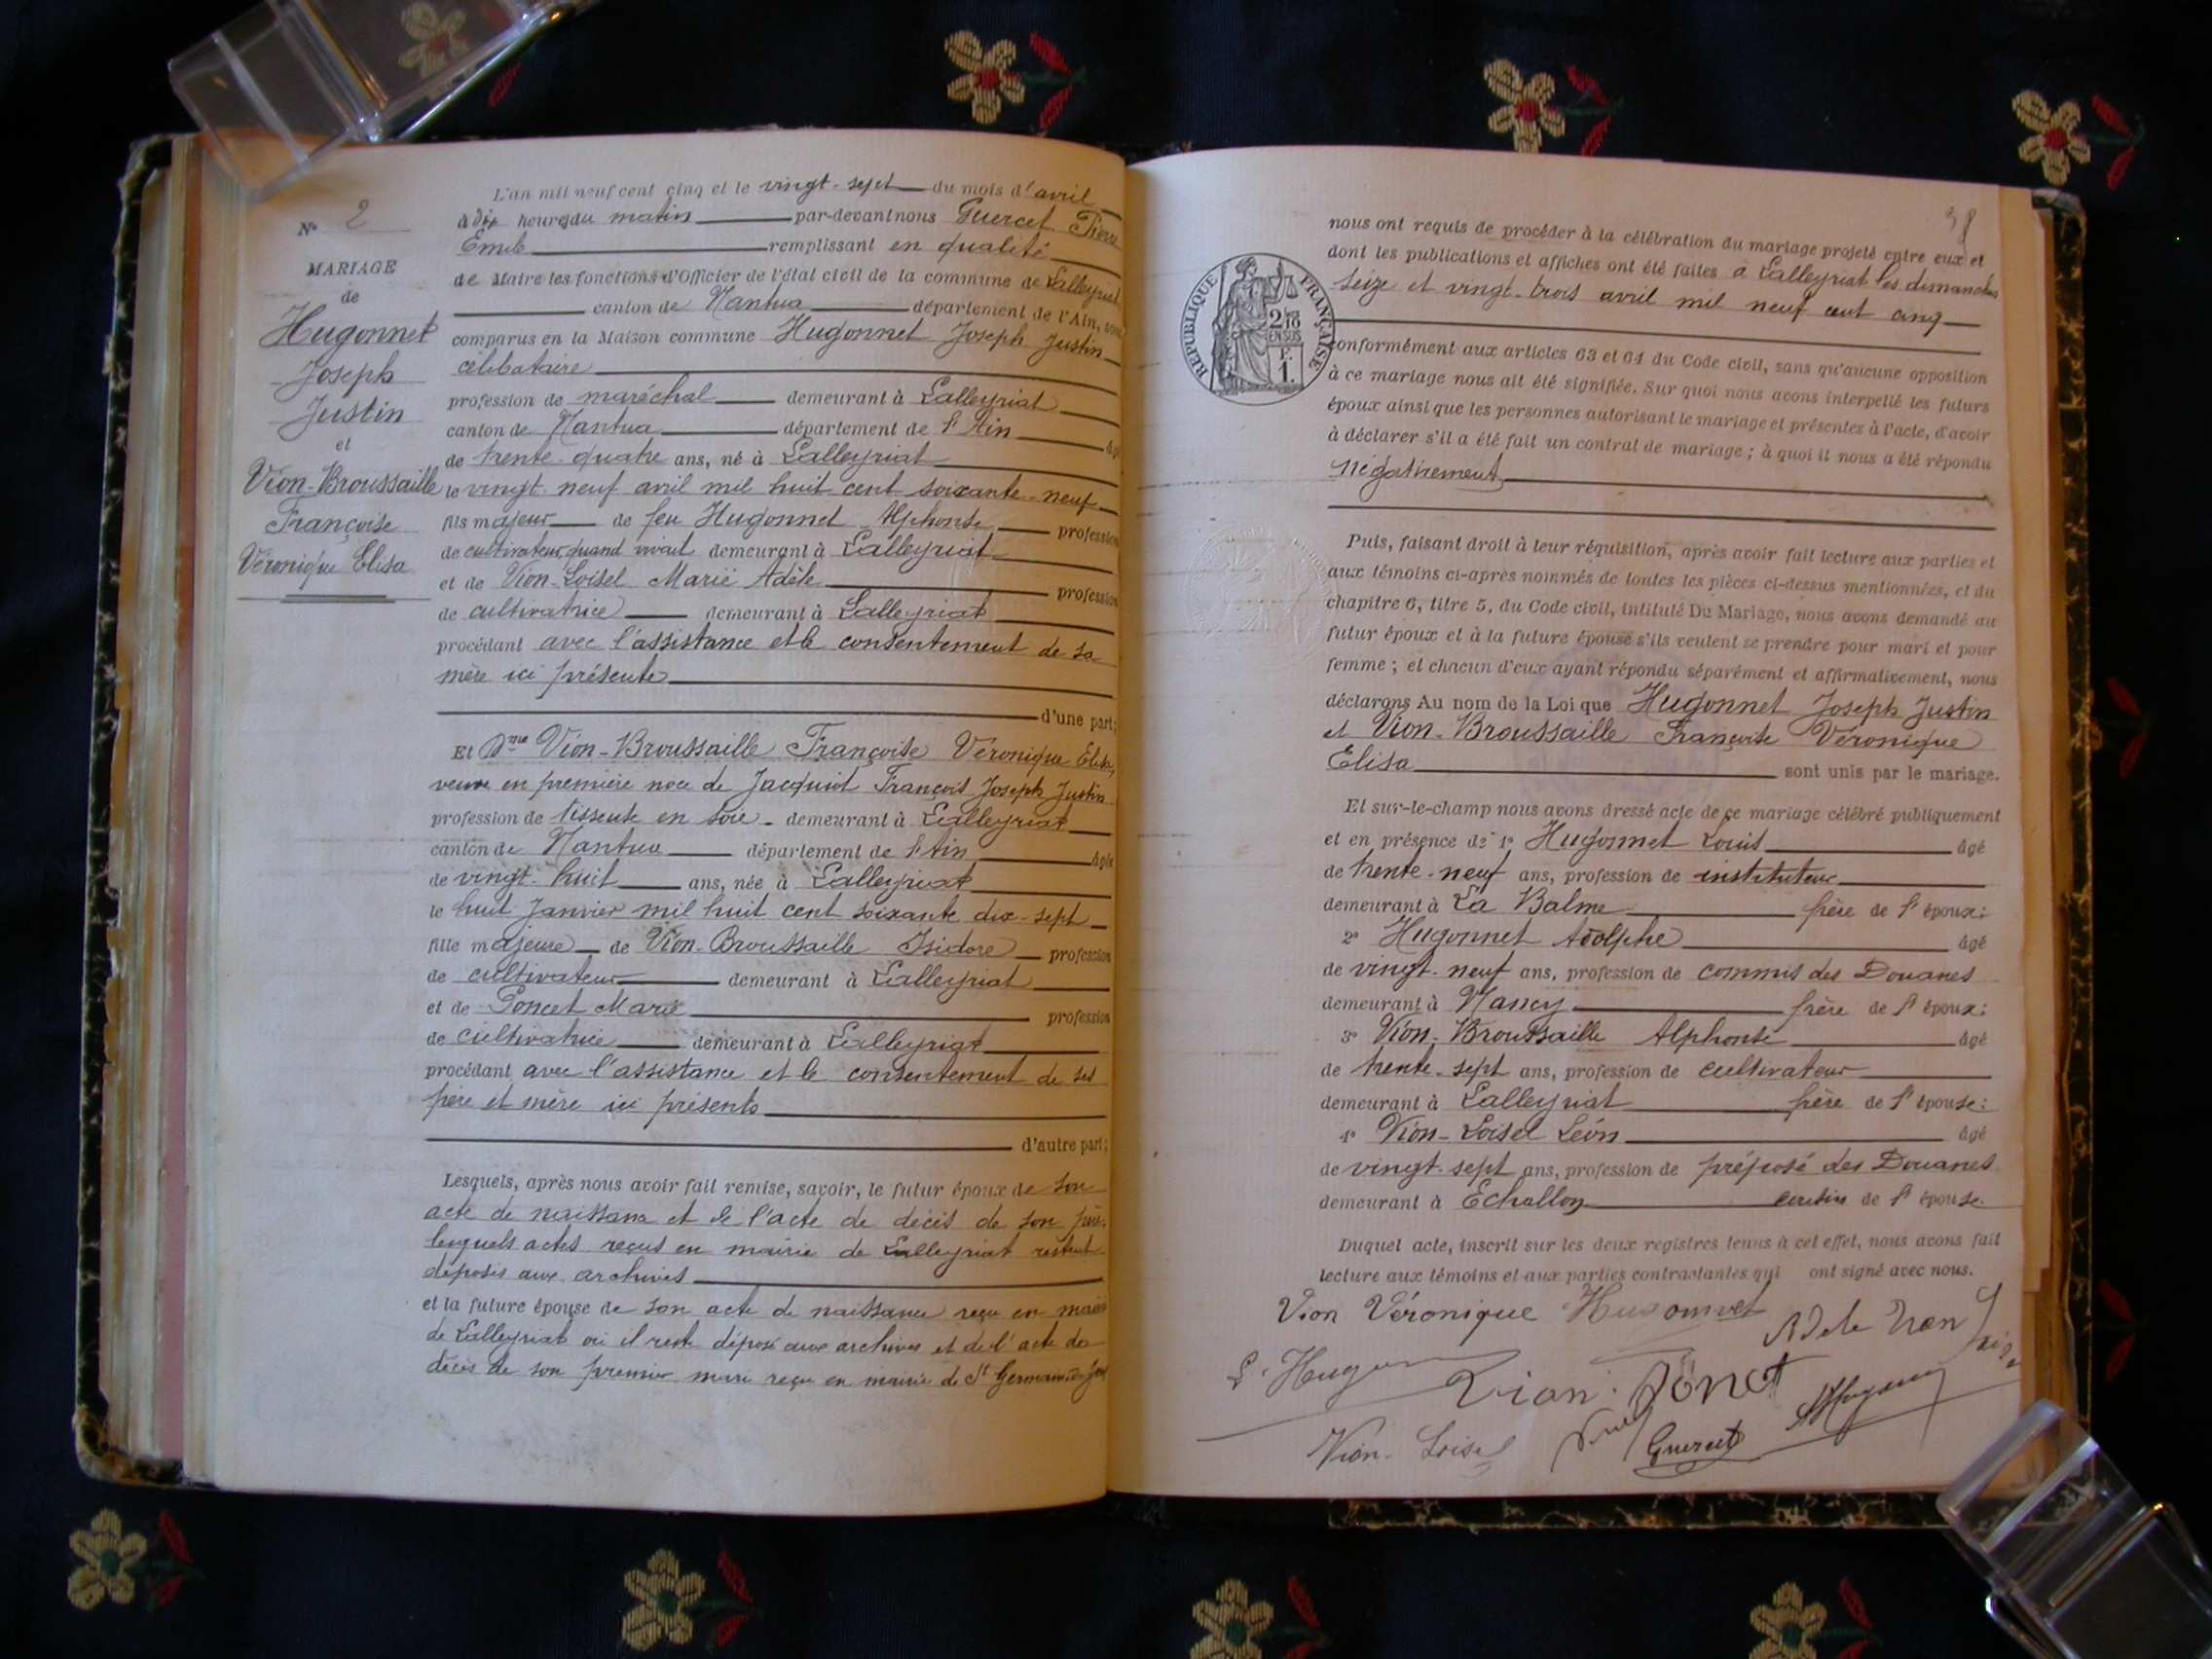 L'an mil neuf cent cinq et le vingt-sept du mois d'avril
N° 2
à dix heures du matin par-devant nous Guercet Pierre
Émile remplissant en qualité
MARIAGE
de
Hugonnet
Joseph
Justin
et
Vion-Broussaille
Françoise
Véronique Elisa
de Maire les fonctions d'Officier de l'état civil de la commune de Lalleyriat
canton de Nantua département de l'Ain, sont
comparus en la Maison commune Hugonnet Joseph Justin
célibataire
profession de maréchal demeurant à Lalleyriat
canton de Nantua département de l'Ain âgé
de trente-quatre ans, né à Lalleyriat
le vingt-neuf avril mil huit cent soixante-neuf
fils majeur de feu Hugonnet Alphonse profession
de cultivateur quand vivait demeurant à Lalleyriat
et de Vion-Loisel Marie Adèle profession
de cultivatrice demeurant à Lalleyriat
procédant avec l'assistance et le consentement de sa
mère ici présente
d'une part;
Et Dme Vion-Broussaille Françoise Véronique Elisa,
veuve en première noce de Jacquiot François Joseph Justin
profession de tisseuse en soie demeurant à Lalleyriat
canton de Nantua département de l'Ain âgée
de vingt-huit ans, née à Lalleyriat
le huit Janvier mil huit cent soixante dix-sept
fille majeure de Vion-Broussaille Isidore profession
de cultivateur demeurant à Lalleyriat
et de Poncet Marie profession
de cultivatrice demeurant à Lalleyriat
procédant avec l'assistance et le consentement de ses
père et mère ici présents
d'autre part;
Lesquels, après nous avoir fait remise, savoir, le futur époux de son
acte de naissance et de l'acte de décès de son père,
lesquels actes reçus en mairie de Lalleyriat restent
déposés aux archives
et la future épouse de son acte de naissance reçu en mairie
de Lalleyriat où il reste déposé aux archives et de l'acte de
décès de son premier mari reçu en mairie de St Germain de Joux
38
nous ont requis de procéder à la célébration du mariage projeté entre eux et
dont les publications et affiches ont été faites à Lalleyriat les dimanches
seize et vingt-trois avril mil neuf cent cinq
RÉPUBLIQUE FRANÇAISE
2/10
EN SUS
F.
1.
conformément aux articles 63 et 64 du Code civil, sans qu'aucune opposition
à ce mariage nous ait été signifiée. Sur quoi nous avons interpellé les futurs
époux ainsi que les personnes autorisant le mariage et présentes à l'acte, d'avoir
à déclarer s'il a été fait un contrat de mariage; à quoi il nous a été répondu
négativement
Puis, faisant droit à leur réquisition, après avoir fait lecture aux parties et
aux témoins ci-après nommés de toutes les pièces ci-dessus mentionnées, et du
chapitre 6, titre 5, du Code civil, intitulé Du Mariage, nous avons demandé au
futur époux et à la future épouse s'ils veulent se prendre pour mari et pour
femme; et chacun d'eux ayant répondu séparément et affirmativement, nous
déclarons Au nom de la Loi que Hugonnet Joseph Justin
et Vion-Broussaille Françoise Véronique
Elisa sont unis par le mariage.
Et sur-le-champ nous avons dressé acte de ce mariage célébré publiquement
et en présence de 1° Hugonnet Louis âgé
de trente-neuf ans, profession de instituteur
demeurant à La Balme frère de l'époux;
2° Hugonnet Adolphe âgé
de vingt-neuf ans, profession de commis des Douanes
demeurant à Nancy frère de l'époux;
3° Vion-Broussaille Alphonse âgé
de trente-sept ans, profession de cultivateur
demeurant à Lalleyriat frère de l'épouse;
4° Vion-Loisel Léon âgé
de vingt-sept ans, profession de préposé des Douanes
demeurant à Echallon cousin de l'épouse.
Duquel acte, inscrit sur les deux registres tenus à cet effet, nous avons fait
lecture aux témoins et aux parties contractantes qui ont signé avec nous.
Vion Véronique Hugonnet
Adele Vion
L. Hugon
Vion Ponct
Vion-Loisel
Guercet